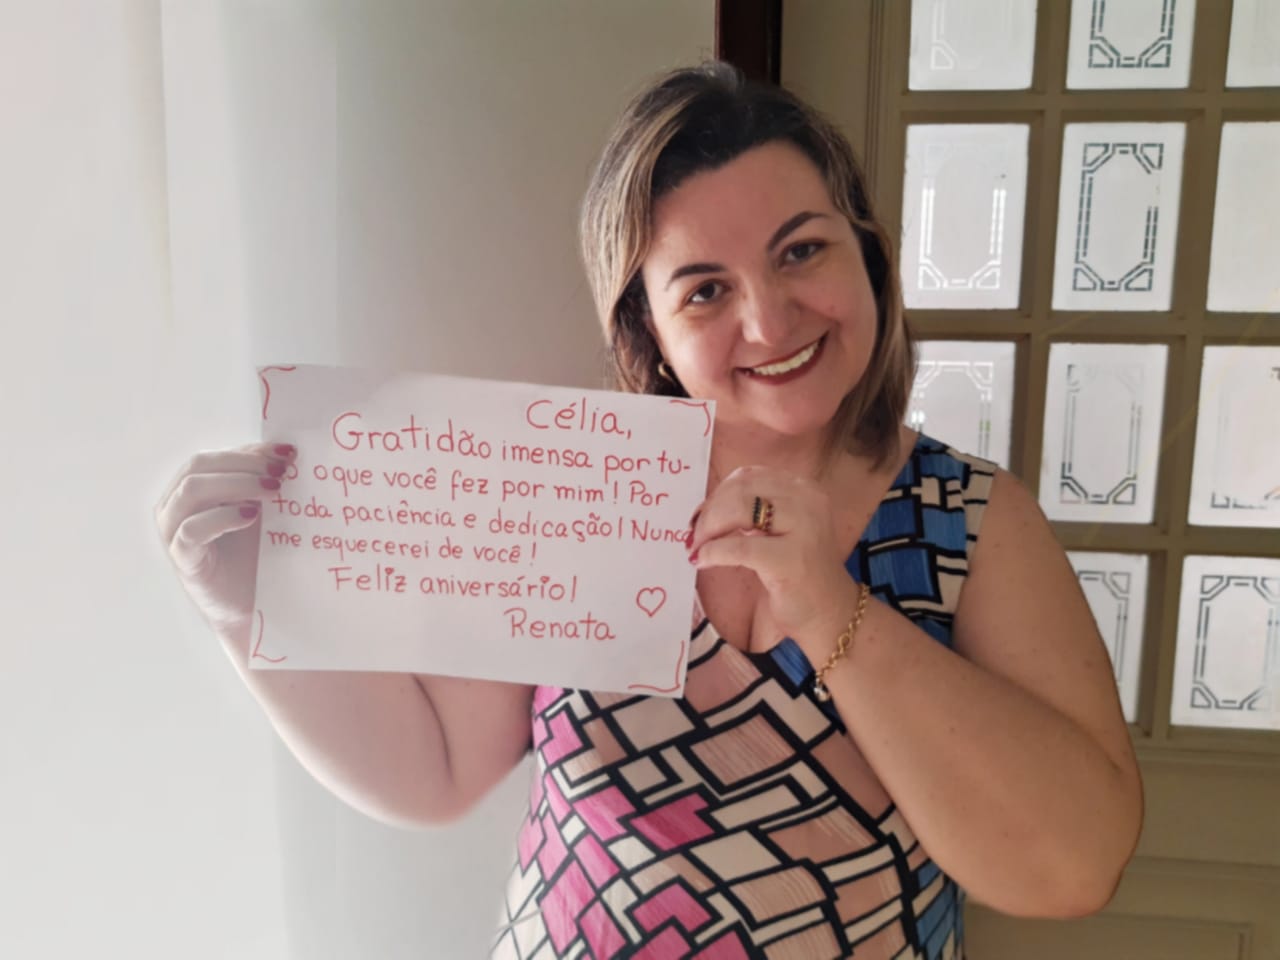 Célia,
Gratidão imensa por tu-
o o que você fez por mim! Por
toda paciência e dedicação! Nunca
me esquecerei de você!
Feliz aniversário!
Renata